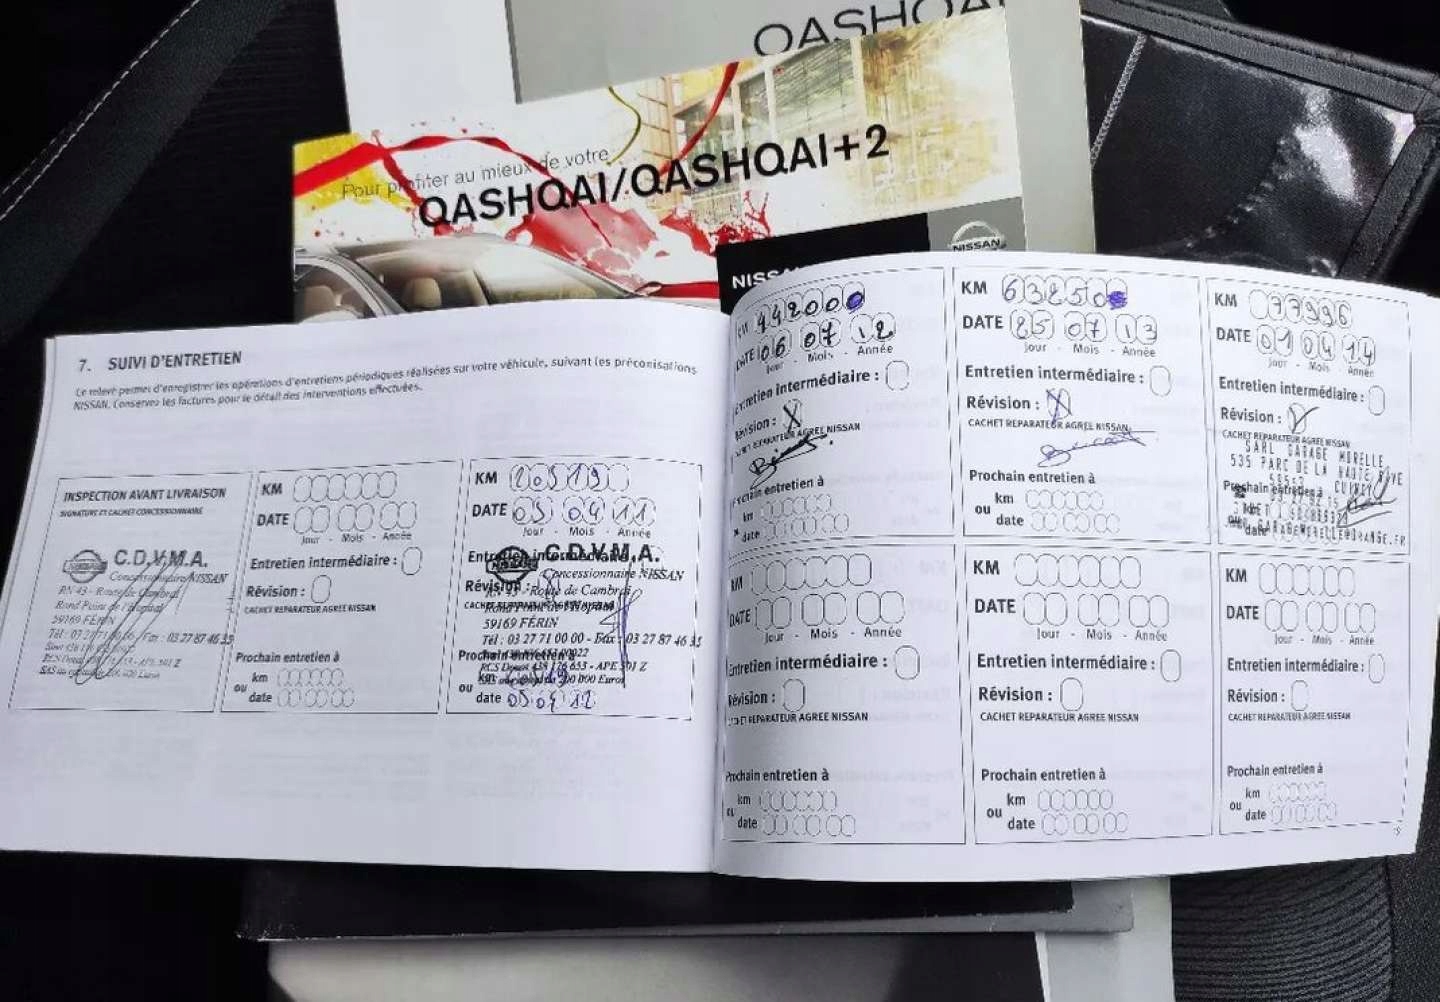 QASHQAI
Pour profiter au mieux de votre
QASHQAI/QASHQAI+2
NISSAN
NISSAN
7. SUIVI D'ENTRETIEN
Ce relevé permet d'enregistrer les opérations d'entretiens périodiques réalisées sur votre véhicule, suivant les préconisations
NISSAN. Conservez les factures pour le détail des interventions effectuées.
INSPECTION AVANT LIVRAISON
SIGNATURE ET CACHET CONCESSIONNAIRE
C.D.V.M.A.
Concessionnaire NISSAN
RN 43 - Route de Cambrai
Rond Point de l'Hopital
59169 FÉRIN
Tél : 03 27 71 00 00 / Fax : 03 27 87 46 35
KM
DATE
Jour - Mois - Année
Entretien intermédiaire :
Révision :
CACHET REPARATEUR AGREE NISSAN
Prochain entretien à
km
ou
date
KM 20519
DATE 05 04 11
Jour - Mois - Année
Entretien intermédiaire :
C.D.V.M.A.
Concessionnaire NISSAN
Révision :
RN 43 - Route de Cambrai
CACHET REPARATEUR AGREE NISSAN
Rond Point de l'Hopital
59169 FÉRIN
Tél : 03 27 71 00 00 - Fax : 03 27 87 46 35
Prochain entretien à
RCS Douai 438 176 653 - APE 501 Z
km
ou
date 05 04 12
KM 442000
DATE 06 07 12
Jour - Mois - Année
Entretien intermédiaire :
Révision : X
CACHET REPARATEUR AGREE NISSAN
Prochain entretien à
km
date
KM 63250
DATE 25 07 13
Jour - Mois - Année
Entretien intermédiaire :
Révision : X
CACHET REPARATEUR AGREE NISSAN
Prochain entretien à
km
ou
date
KM 77996
DATE 01 04 14
Jour - Mois - Année
Entretien intermédiaire :
Révision :
CACHET REPARATEUR AGREE NISSAN
SARL GARAGE MORELLE
535 PARC DE LA HAUTE RIVE
CUINCY
Prochain entretien à
km
ou
date
GARAGEMORELLE@ORANGE.FR
KM
DATE
Jour - Mois - Année
Entretien intermédiaire :
Révision :
CACHET REPARATEUR AGREE NISSAN
Prochain entretien à
km
ou
date
KM
DATE
Jour - Mois - Année
Entretien intermédiaire :
Révision :
CACHET REPARATEUR AGREE NISSAN
Prochain entretien à
km
ou
date
KM
DATE
Jour - Mois - Année
Entretien intermédiaire :
Révision :
CACHET REPARATEUR AGREE NISSAN
Prochain entretien à
km
ou
date